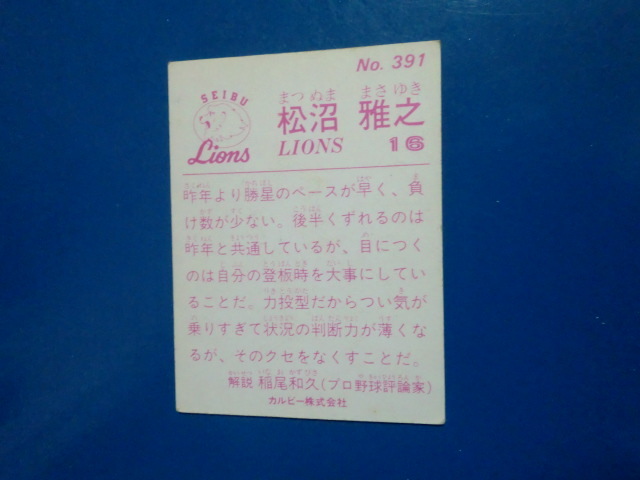 No. 391
SEIBU
Lions
まつ ぬま まさ ゆき
松沼 雅之
LIONS 16
昨年より勝星のペースが早く、負
け数が少ない。後半くずれるのは
昨年と共通しているが、目につく
のは自分の登板時を大事にしてい
ることだ。力投型だからつい気が
乗りすぎて状況の判断力が薄くな
るが、そのクセをなくすことだ。
解説 稲尾和久(プロ野球評論家)
カルビー株式会社